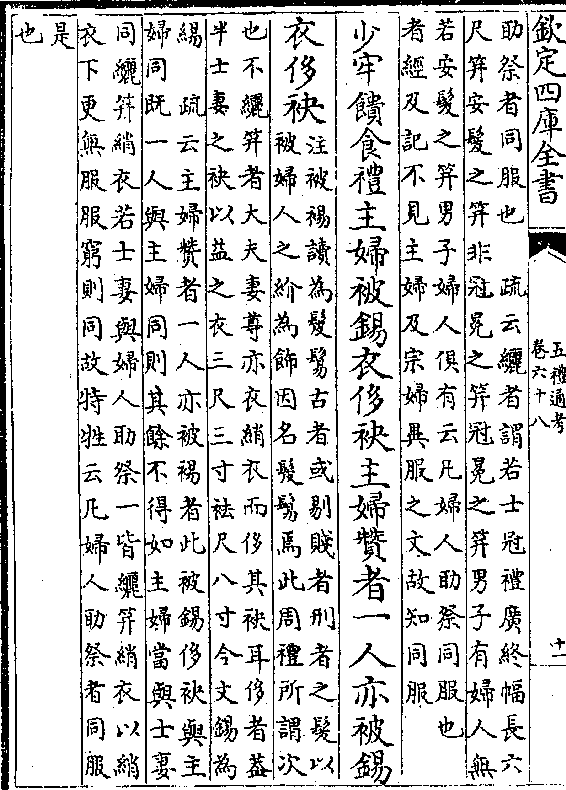 欽定四庫全書
五禮通考
卷六十八
十一
助祭者同服也　疏云纚者謂若士冠禮廣終幅長六
尺笄安髮之笄非冠冕之笄冠冕之笄男子有婦人無
若安髮之笄男子婦人俱有云凡婦人助祭同服也
者經及記不見主婦及宗婦異服之文故知同服
少牢饋食禮主婦被錫衣侈袂主婦贊者一人亦被錫
衣侈袂
注被裼讀為髲鬄古者或剔賤者刑者之髮以
被婦人之紒為飾因名髲鬄焉此周禮所謂次
也不纚笄者大夫妻尊亦衣綃衣而侈其袂耳侈者葢
半士妻之袂以益之衣三尺三寸袪尺八寸今文錫為
緆　疏云主婦贊者一人亦被裼者此被錫侈袂與主
婦同既一人與主婦同則其餘不得如主婦當與士妻
同纚笄綃衣若士妻與婦人助祭一皆纚笄綃衣以綃
衣下更無服服窮則同故特牲云凡婦人助祭者同服
是
也